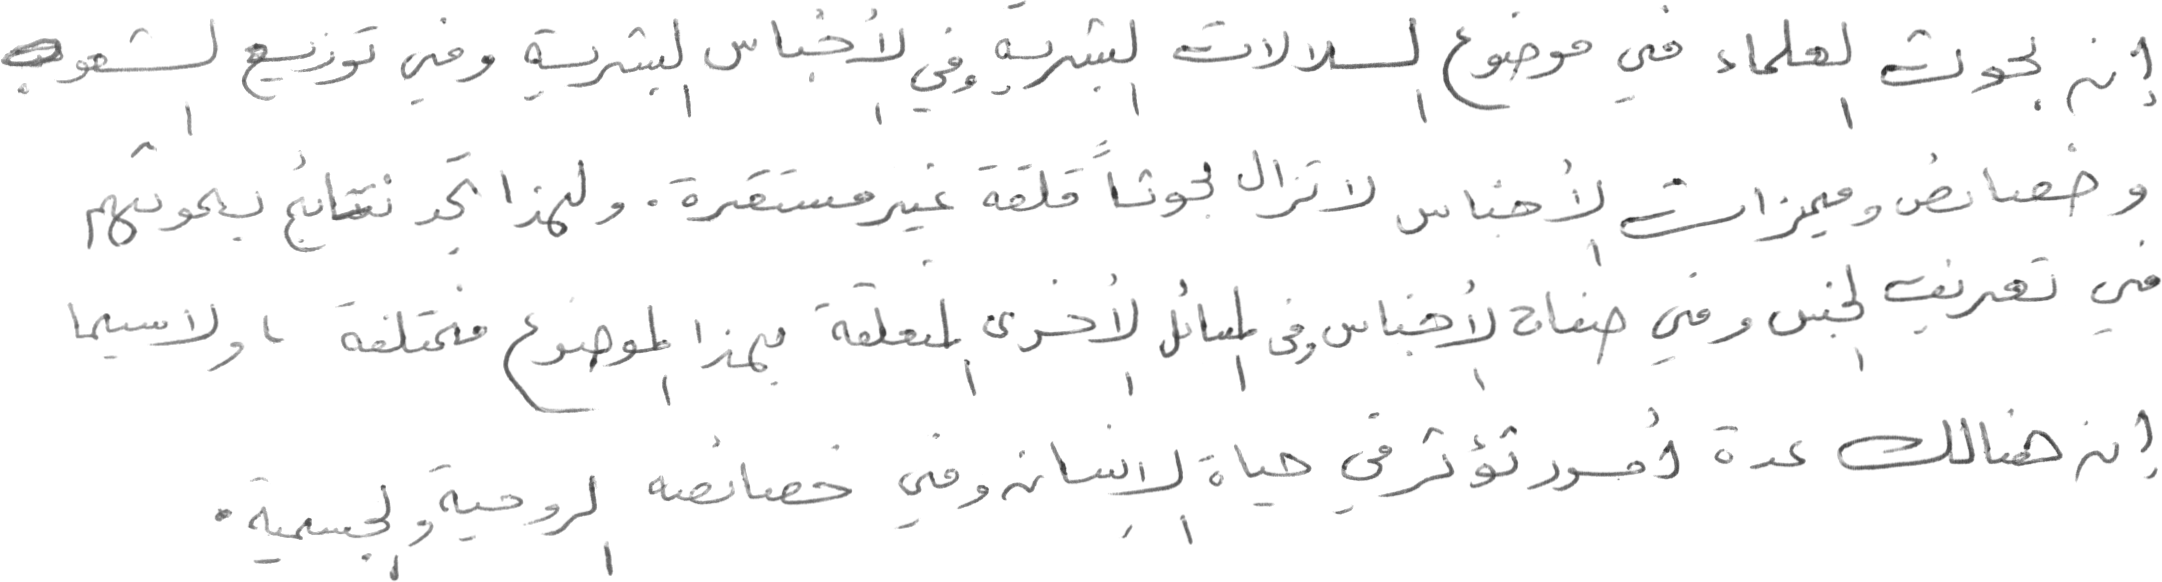 إن بحوث العلماء في موضوع السلالات البشرية وفي الأجناس البشرية وفي توزيع الشعوب
وخصائص ومميزات الأجناس لا تزال بحوثاً قلقة غير مستقرة. ولهذا تجد نتائج بحوثهم
في تعريف الجنس وفي صفات الأجناس وفى المسائل الأخرى المتعلقة بهذا الموضوع مختلفة، ولا سيما
إن هنالك عدة أمور تؤثر في حياة الإنسان وفي خصائصه الروحية والجسمية.